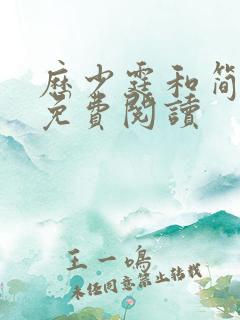 历少霆和简
免費閱讀
王一鳴
未经同意禁止转载